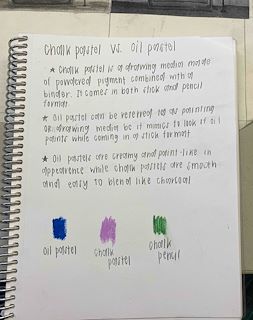 Chalk pastel vs. oil pastel
★ Chalk pastel is a drawing median made
of powdered pigment combined with a
binder. It comes in both stick and pencil
format.
★ Oil pastel can be referred to as painting
or drawing media bc it mimics to look if oil
paints while coming in a stick format
★ Oil pastels are creamy and paint-like in
appearence while chalk pastels are smooth
and easy to blend like charcoal
oil pastel
chalk
pastel
chalk
pencil